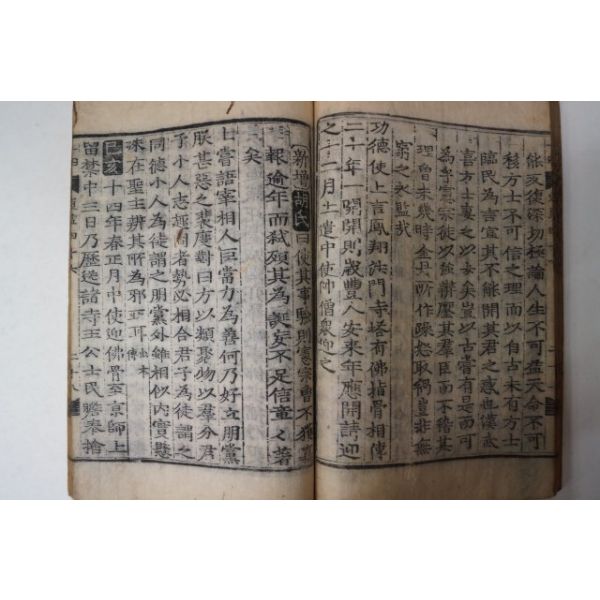 能亥復深切極論人生不可孟天命不可
移方士不可信之理而以自古未有方士
臨民為言宜其不能開其君之惑也僕底
喜方士妻之以女矣豈以古嘗有是而可
為乎憲宗徒以強辯壓其羣臣而不稽其
理曾未幾時金丹所作躁怒取禍豈非無
窮之永監哉
功德使上言鳳翔法門寺塔有佛指骨相傳
三十年一開開則歲豐人安來年應開請迎
之十二月上遣中使帥僧衆迎之
新增胡氏曰使其事驗則憲宗曾不
報逾年而弑殞其為誕妄不足信章章著
矣
上嘗語宰相人臣當力為善何乃好立朋黨
朕甚惡之裴度對曰方以類聚物以羣分君
子小人志趣同者勢必相合君子為徒謂之
同德小人為徒謂之朋黨外雖相似內實懸
殊在聖主辨其所為邪正耳
己亥十四年春正月中使迎佛骨至京師上
留禁中三日乃歷送諸寺王公士民瞻奉捨